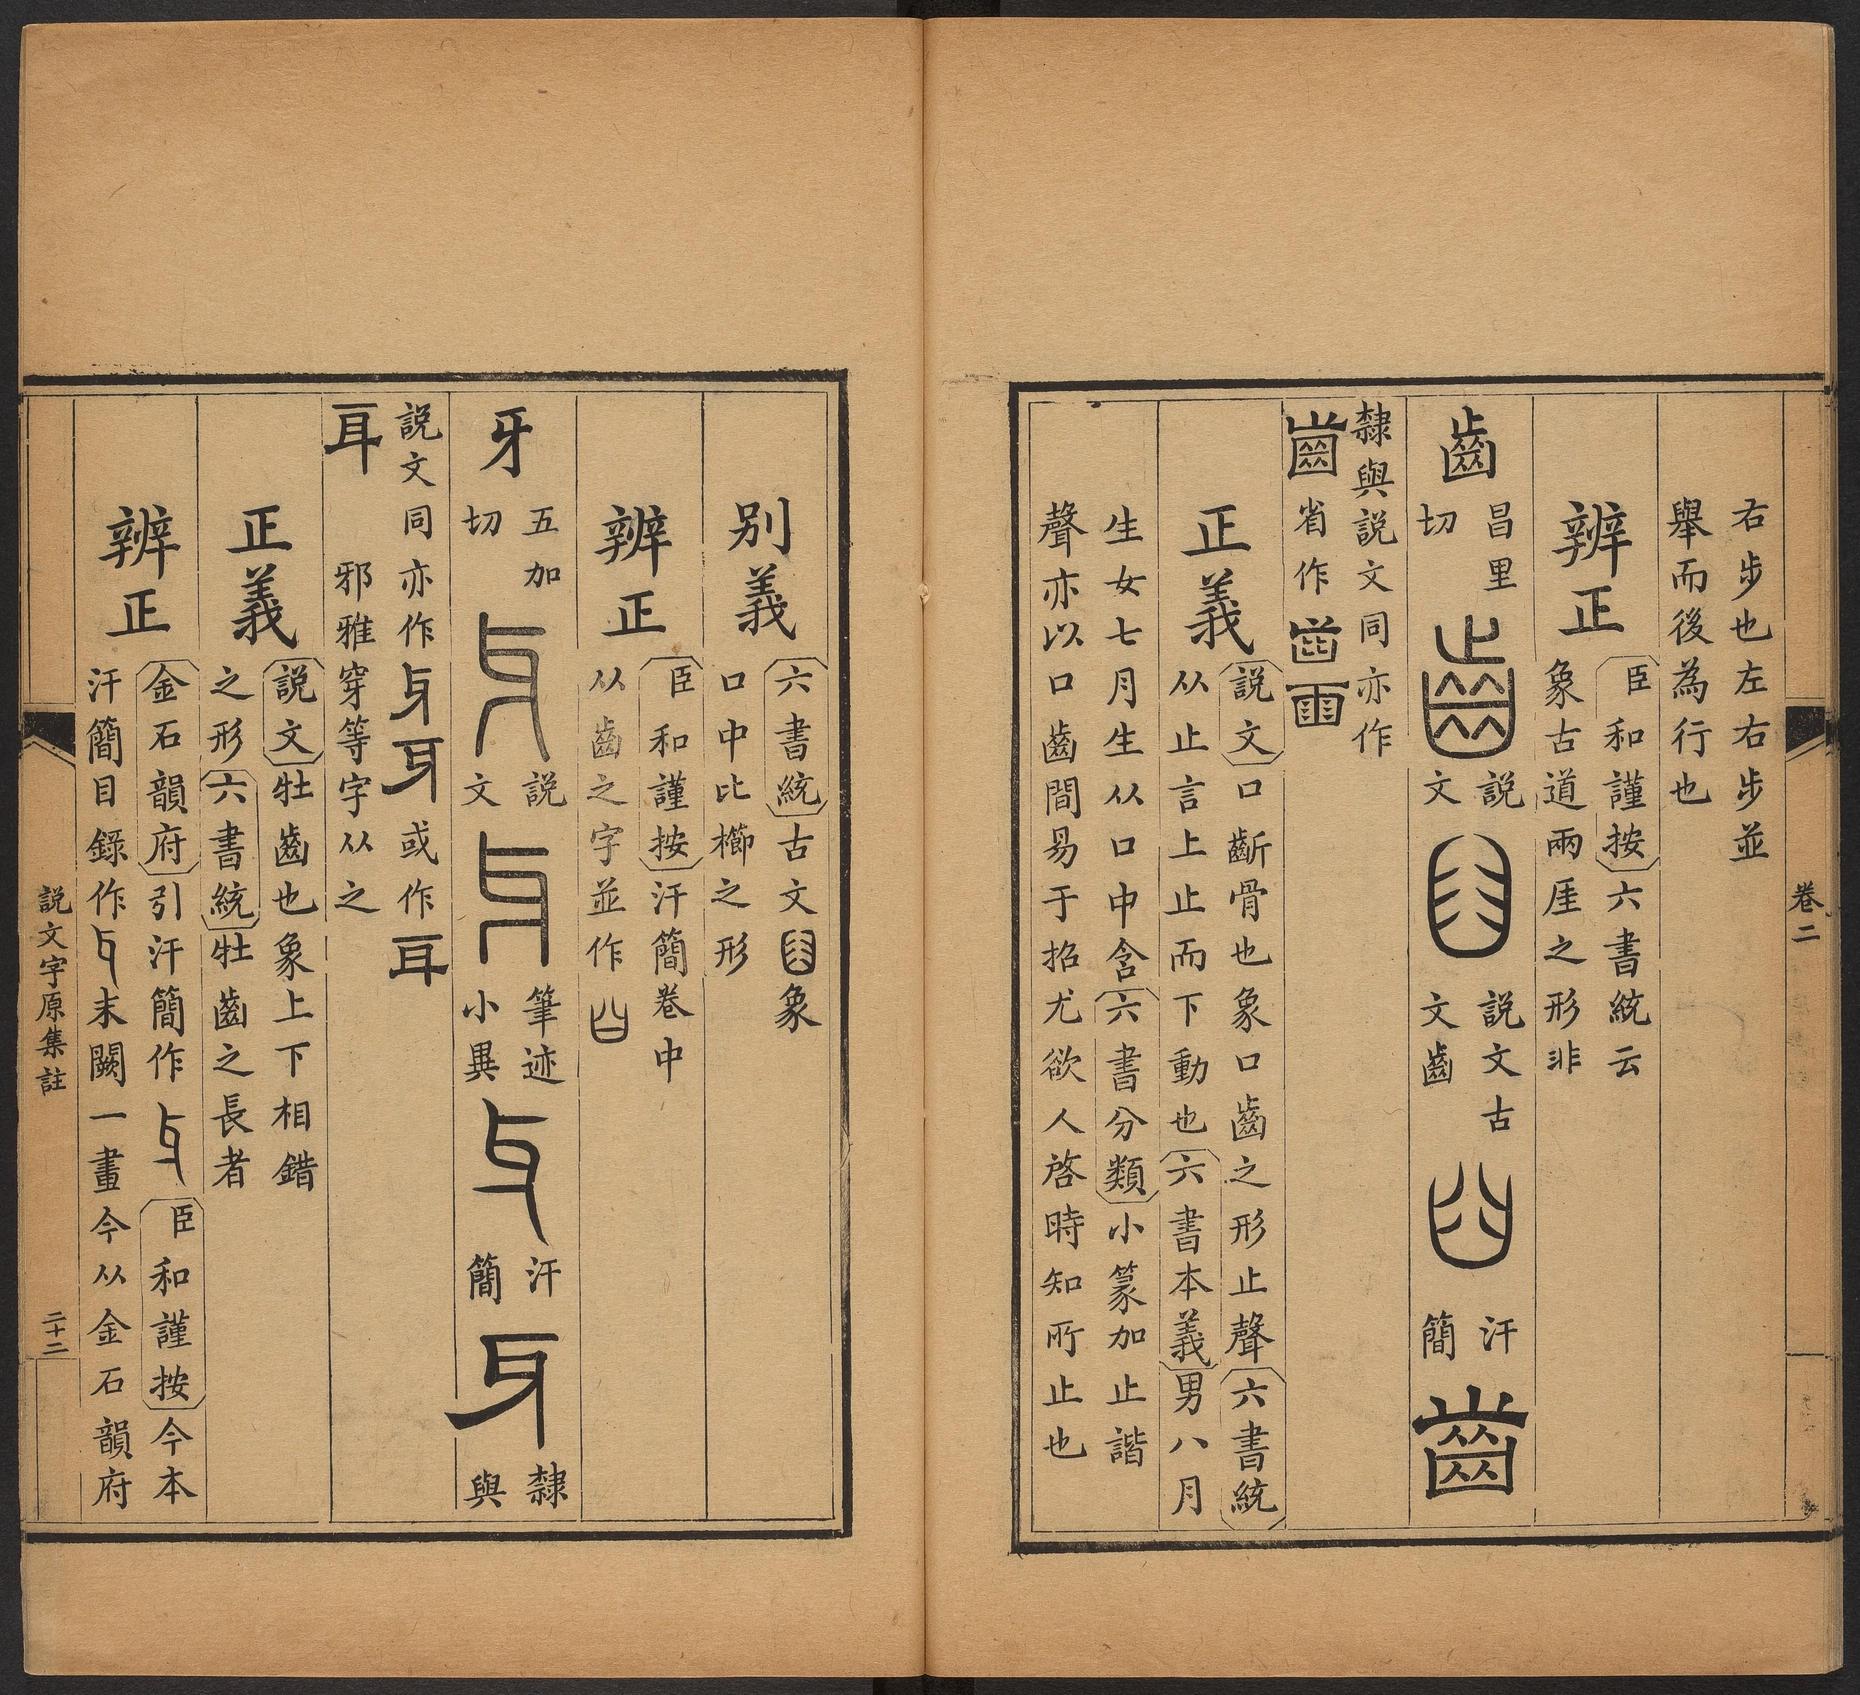 卷二
右步也左右步並
舉而後為行也
辨正
臣和謹按六書統云
象古道兩厓之形非
齒
昌里
切
說
文
說文古
文齒
汗
簡
齒
隸與說文同亦作
齒省作
正義
說文口齗骨也象口齒之形止聲六書統
从止言上止而下動也六書本義男八月
生女七月生从口中含六書分類小篆加止諧
聲亦以口齒間易于招尤欲人啓時知所止也
別義
六書統古文象
口中比櫛之形
辨正
臣和謹按汗簡卷中
从齒之字並作
牙
五加
切
說
文
筆迹
小異
汗
簡
隸
與
說文同亦作或作
邪雅穿等字从之
正義
說文牡齒也象上下相錯
之形六書統牡齒之長者
辨正
金石韻府引汗簡作臣和謹按今本
汗簡目錄作末闕一畫今从金石韻府
說文字原集註
二十二